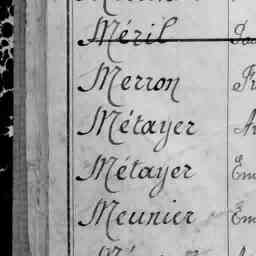 Méril
Merron
Métayer
Métayer Em
Meunier Em